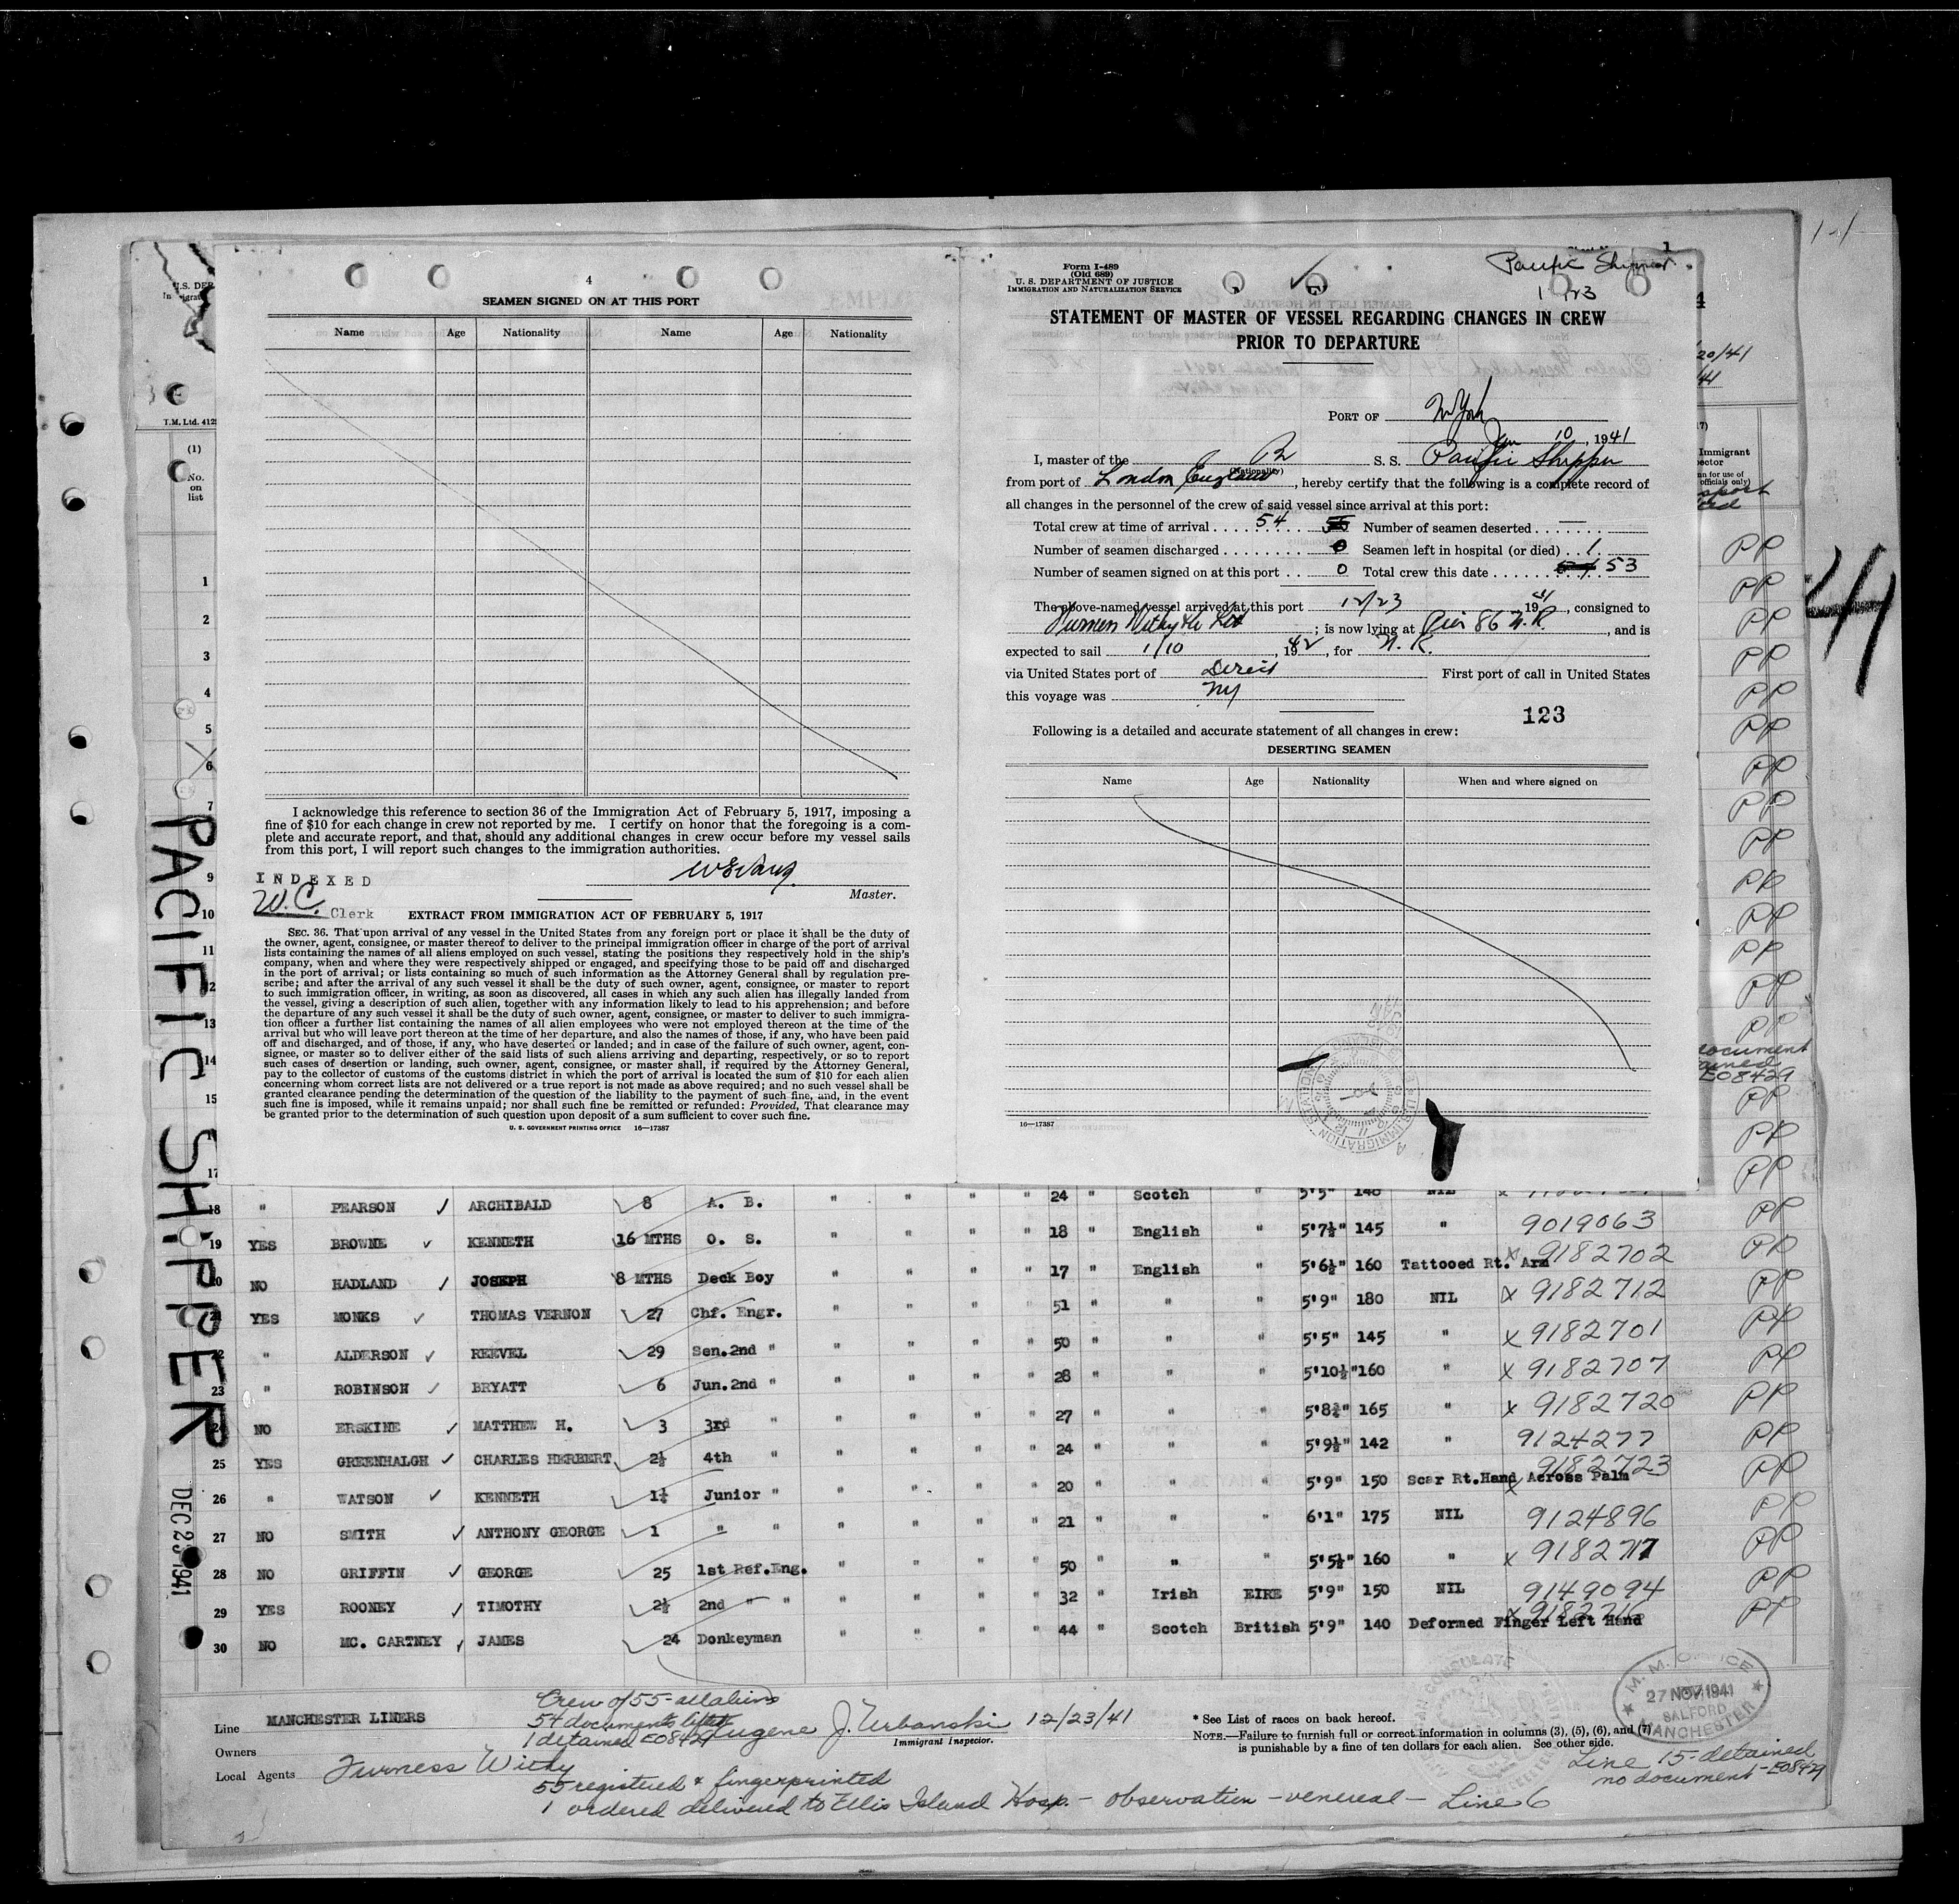 4
SEAMEN SIGNED ON AT THIS PORT
Name Age Nationality Name Age Nationality
I acknowledge this reference to section 36 of the Immigration Act of February 5, 1917, imposing a
fine of $10 for each change in crew not reported by me. I certify on honor that the foregoing is a com-
plete and accurate report, and that, should any additional changes in crew occur before my vessel sails
from this port, I will report such changes to the immigration authorities.
INDEXED
W.C. Clerk
Master.
EXTRACT FROM IMMIGRATION ACT OF FEBRUARY 5, 1917
SEC. 36. That upon arrival of any vessel in the United States from any foreign port or place it shall be the duty of
the owner, agent, consignee, or master thereof to deliver to the principal immigration officer in charge of the port of arrival
lists containing the names of all aliens employed on such vessel, stating the positions they respectively hold in the ship's
company, when and where they were respectively shipped or engaged, and specifying those to be paid off and discharged
in the port of arrival; or lists containing so much of such information as the Attorney General shall by regulation pre-
scribe; and after the arrival of any such vessel it shall be the duty of such owner, agent, consignee, or master to report
to such immigration officer, in writing, as soon as discovered, all cases in which any such alien has illegally landed from
the vessel, giving a description of such alien, together with any information likely to lead to his apprehension; and before
the departure of any such vessel it shall be the duty of such owner, agent, consignee, or master to deliver to such immigra-
tion officer a further list containing the names of all alien employees who were not employed thereon at the time of the
arrival but who will leave port thereon at the time of her departure, and also the names of those, if any, who have been paid
off and discharged, and of those, if any, who have deserted or landed; and in case of the failure of such owner, agent, con-
signee, or master so to deliver either of the said lists of such aliens arriving and departing, respectively, or so to report
such cases of desertion or landing, such owner, agent, consignee, or master shall, if required by the Attorney General,
pay to the collector of customs of the customs district in which the port of arrival is located the sum of $10 for each alien
concerning whom correct lists are not delivered or a true report is not made as above required; and no such vessel shall be
granted clearance pending the determination of the question of the liability to the payment of such fine, and, in the event
such fine is imposed, while it remains unpaid; nor shall such fine be remitted or refunded: Provided, That clearance may
be granted prior to the determination of such question upon deposit of a sum sufficient to cover such fine.
U. S. GOVERNMENT PRINTING OFFICE 16—17387
Form I-489
(Old 689)
U. S. DEPARTMENT OF JUSTICE
IMMIGRATION AND NATURALIZATION SERVICE
Pacific Shipper
STATEMENT OF MASTER OF VESSEL REGARDING CHANGES IN CREW
PRIOR TO DEPARTURE
PORT OF N York
Jan 10, 1941
I, master of the Br S. S. Pacific Shipper
(Nationality)
from port of London England, hereby certify that the following is a complete record of
all changes in the personnel of the crew of said vessel since arrival at this port:
Total crew at time of arrival 54 55 Number of seamen deserted —
Number of seamen discharged 0 Seamen left in hospital (or died) 1
Number of seamen signed on at this port 0 Total crew this date 54 53
The above-named vessel arrived at this port 12/23 1941, consigned to
Furness Withy & Co Ltd; is now lying at Pier 86 N.R., and is
expected to sail 1/10, 1942, for U. K.
via United States port of Direct First port of call in United States
this voyage was NY
123
Following is a detailed and accurate statement of all changes in crew:
DESERTING SEAMEN
Name Age Nationality When and where signed on
16—17387
44
PACIFIC SHIPPER
DEC 23 1941
T.M. Ltd.
(1)
No.
on
list
1
2
3
4
5
6
7
9
10
11
12
13
14
15
17
18 " PEARSON ✓ ARCHIBALD 8 A. B. " " " " 24 " Scotch " 5'5" 140 NIL PP
19 YES BROWNE ✓ KENNETH 16 MTHS O. S. " " " " 18 " English " 5'7½" 145 " 9019063 PP
20 NO HADLAND ✓ JOSEPH 8 MTHS Deck Boy " " " " 17 " English " 5'6½" 160 Tattooed Rt. Arm x 9182702 PP
21 YES MONKS ✓ THOMAS VERNON 27 Chf. Engr. " " " " 51 " " " 5'9" 180 NIL x 9182712 PP
22 " ALDERSON ✓ REEVEL 29 Sen.2nd " " " " " 50 " " " 5'5" 145 " x 9182701 PP
23 " ROBINSON ✓ BRYATT 6 Jun.2nd " " " " " 28 " " " 5'10½" 160 " x 9182707 PP
24 NO ERSKINE ✓ MATTHEW H. 3 3rd " " " " " 27 " " " 5'8¾" 165 " x 9182720 PP
25 YES GREENHALGH ✓ CHARLES HERBERT 2½ 4th " " " " " 24 " " " 5'9½" 142 " 9124277 PP
26 " WATSON ✓ KENNETH 1¼ Junior " " " " " 20 " " " 5'9" 150 Scar Rt.Hand Across Palm x 9182723 PP
27 NO SMITH ✓ ANTHONY GEORGE 1 " " " " " " 21 " " " 6'1" 175 NIL 9124896 PP
28 NO GRIFFIN ✓ GEORGE 25 1st Ref.Eng. " " " " 50 " " " 5'5½" 160 " x 9182717 PP
29 YES ROONEY ✓ TIMOTHY 2½ 2nd " " " " " " 32 " Irish EIRE 5'9" 150 NIL 9149094 PP
30 NO MC. CARTNEY ✓ JAMES 24 Donkeyman " " " " 44 " Scotch British 5'9" 140 Deformed Finger Left Hand PP
Line MANCHESTER LINERS
Owners
Local Agents Furness Withy
Crew of 55 - all aliens
54 documents listed
1 detained E08429
Eugene J. Urbanski 12/23/41
Immigrant Inspector.
55 registered & fingerprinted
1 ordered delivered to Ellis Island Hosp. - observation - venereal - Line 6
* See List of races on back hereof.
NOTE.—Failure to furnish full or correct information in columns (3), (5), (6), and (7)
is punishable by a fine of ten dollars for each alien. See other side.
Line 15 - detained
no document - E08429
27 NOV 1941
SALFORD
MANCHESTER